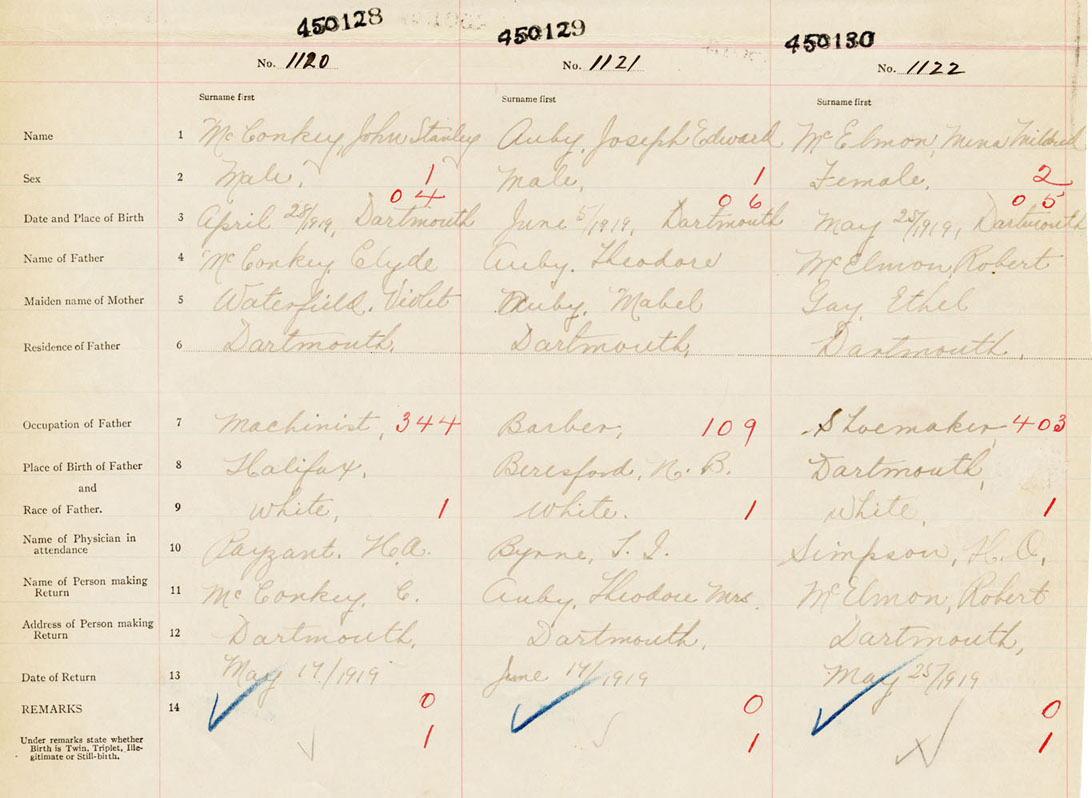 450128 450129 450130
No. 1120 No. 1121 No. 1122
Surname first Surname first Surname first
Name 1 McConkey, John Stanley Auby, Joseph Edward McElmon, Mena Mildred
Sex 2 Male, 1 Male, 1 Female, 2
04 06 05
Date and Place of Birth 3 April 28/1919, Dartmouth June 5/1919, Dartmouth May 23/1919, Dartmouth
Name of Father 4 McConkey, Clyde Auby, Theodore McElmon, Robert
Maiden name of Mother 5 Waterfield, Violet Auby, Mabel Gay, Ethel
Residence of Father 6 Dartmouth, Dartmouth, Dartmouth,
Occupation of Father 7 Machinist, 344 Barber, 109 Shoemaker 403
Place of Birth of Father 8 Halifax, Beresford, N.B. Dartmouth,
and
Race of Father. 9 White, 1 White. 1 White, 1
Name of Physician in
attendance 10 Payzant, H.A. Byrne, T. I. Simpson, H.O,
Name of Person making
Return 11 McConkey, C. Auby, Theodore Mrs. McElmon, Robert
Address of Person making
Return 12 Dartmouth, Dartmouth, Dartmouth,
Date of Return 13 May 17/1919 June 17/1919 May 25/1919
REMARKS 14 0 0 0
Under remarks state whether
Birth is Twin, Triplet, Ille-
gitimate or Still-birth. 1 1 1